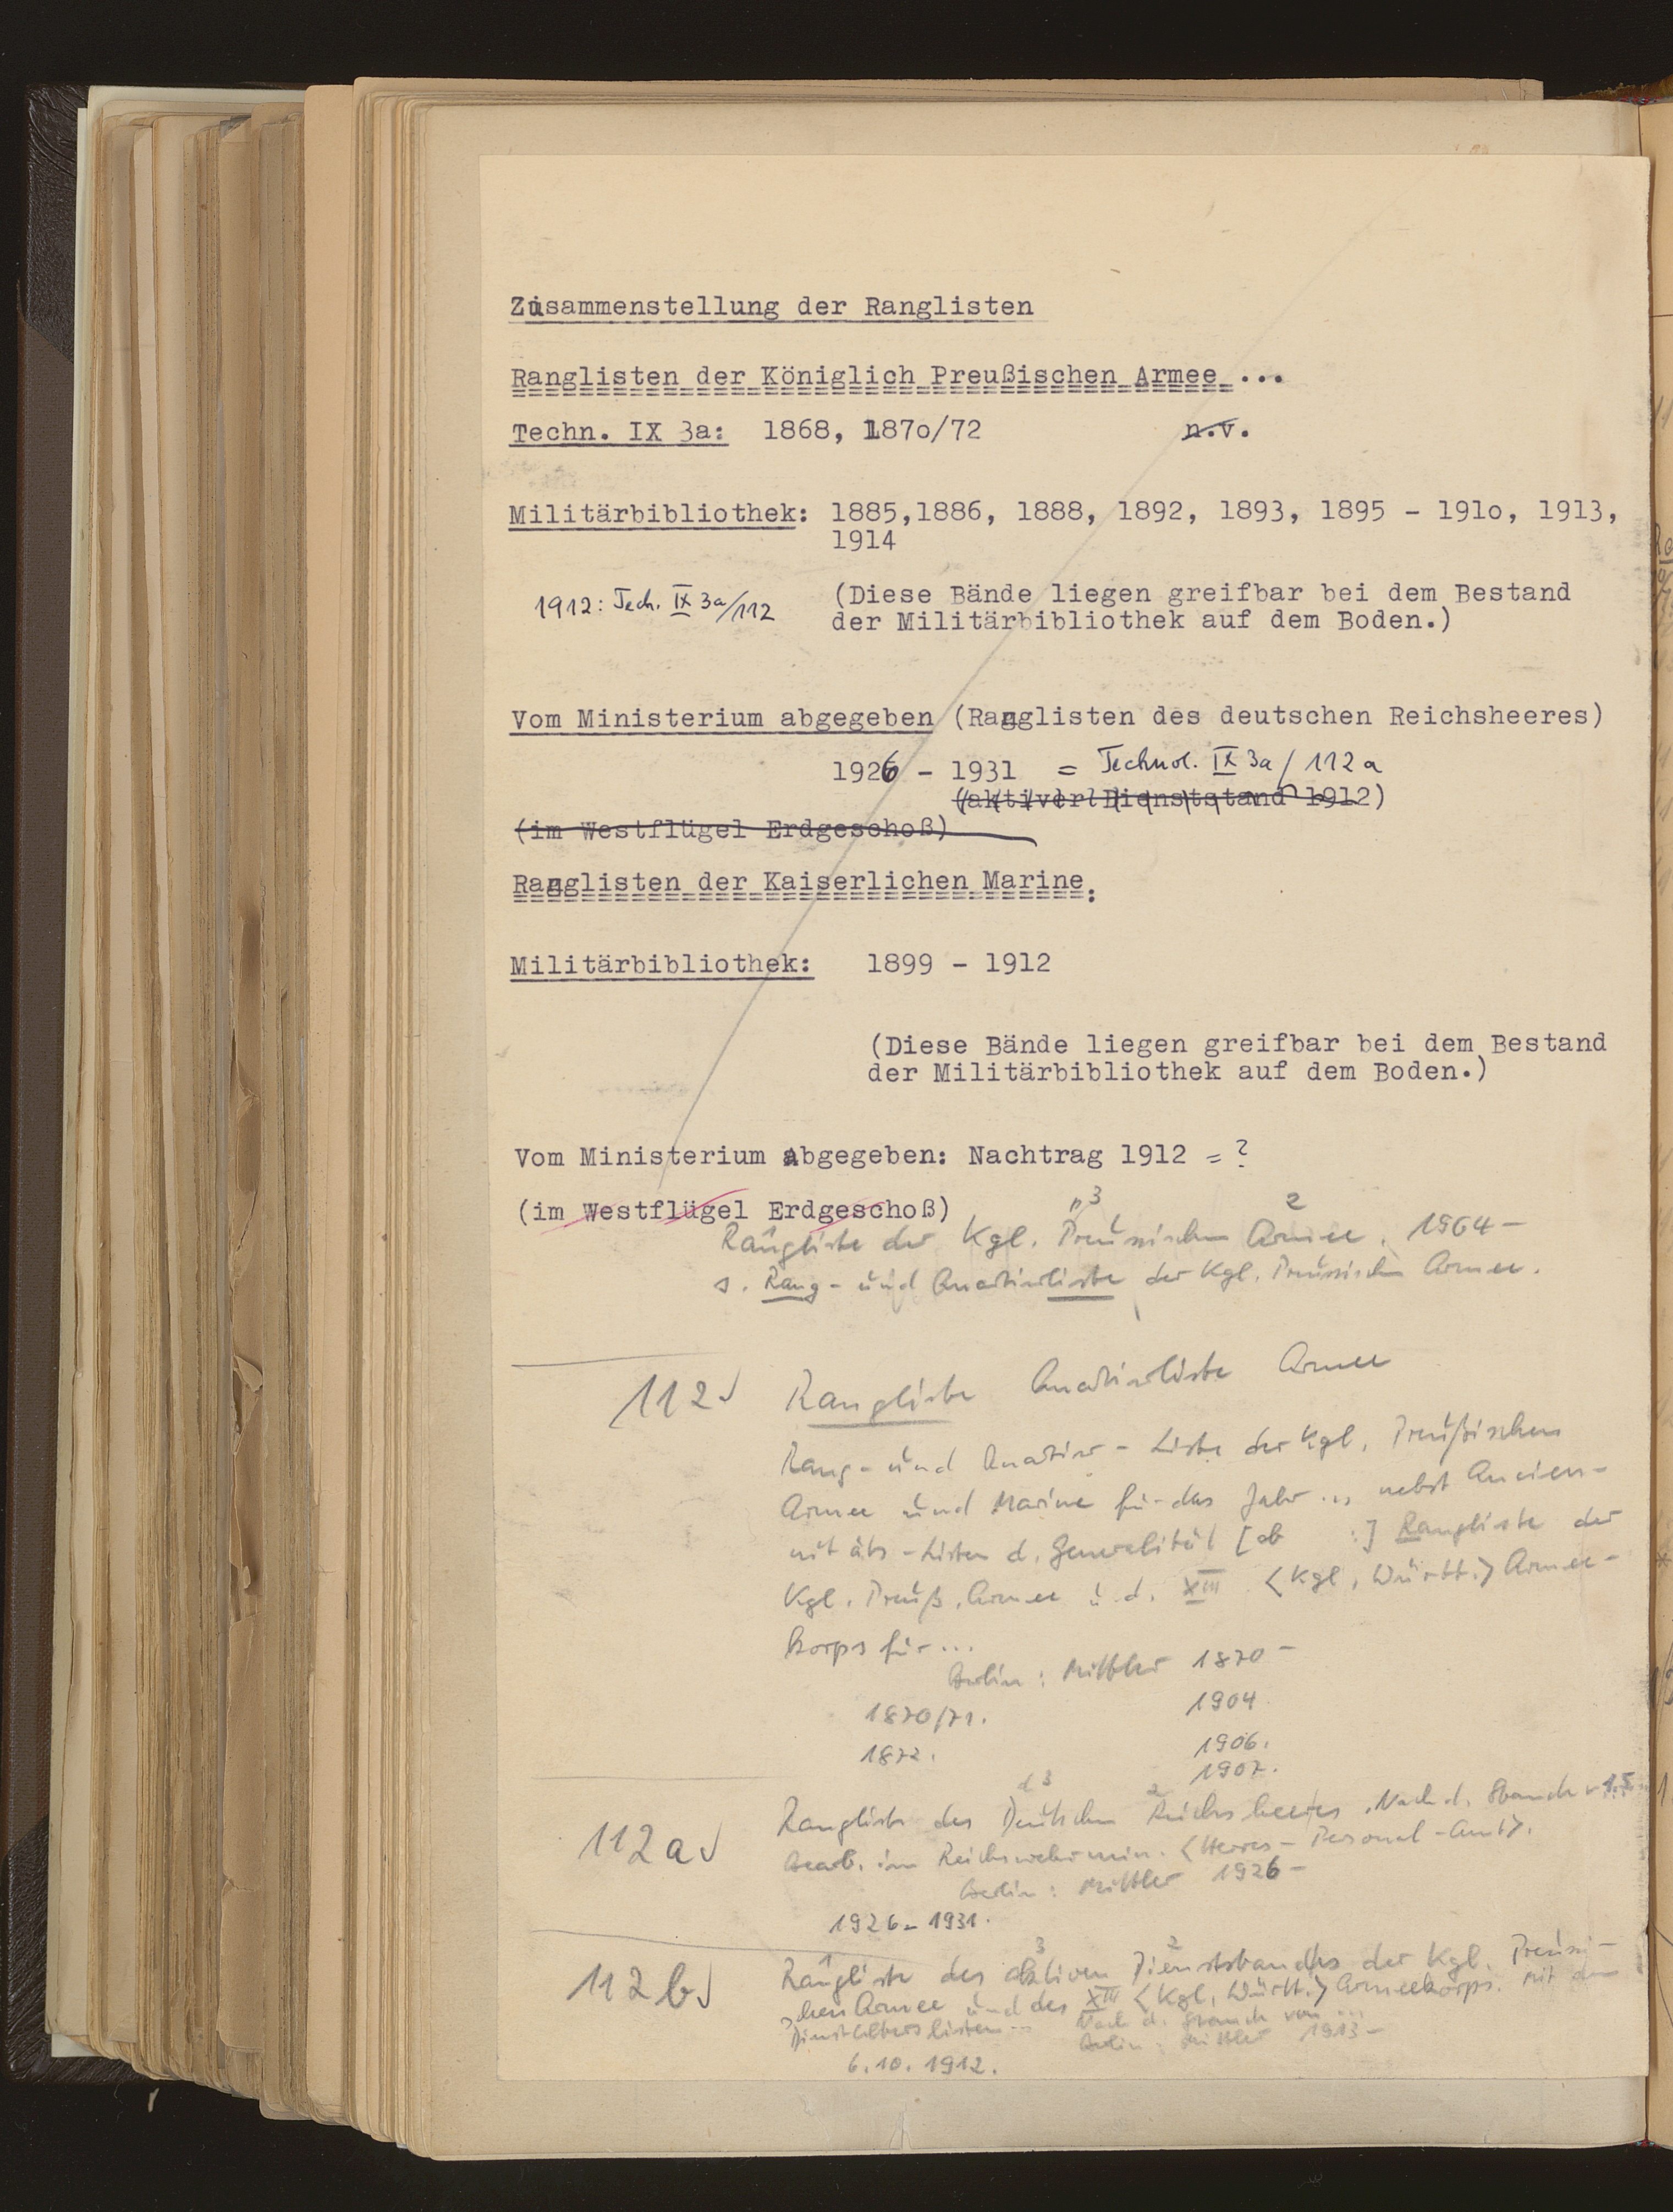 Zusammenstellung der Ranglisten
Ranglisten der Königlich Preußischen Armee ...
Techn. IX 3a: 1868, 187o/72 n.v.
Militärbibliothek: 1885,1886, 1888, 1892, 1893, 1895 - 191o, 1913,
1914
1912: Tech. IX 3a/112
(Diese Bände liegen greifbar bei dem Bestand
der Militärbibliothek auf dem Boden.)
Vom Ministerium abgegeben (Ranglisten des deutschen Reichsheeres)
1926 - 1931 = Technol. IX 3a / 112 a
(aktiver Dienststand 1912)
(im Westflügel Erdgeschoß)
Ranglisten der Kaiserlichen Marine:
Militärbibliothek: 1899 - 1912
(Diese Bände liegen greifbar bei dem Bestand
der Militärbibliothek auf dem Boden.)
Vom Ministerium Abgegeben: Nachtrag 1912 = ?
(im Westflügel Erdgeschoß)
p3 2
Rangliste der Kgl. Preussischen Armee. 1904 -
s. Rang- und Quartierliste der Kgl. Preussischen Armee.
112 Rangliste Quartierliste Armee
Rang- und Quartier-Liste der Kgl. Preußischen
Armee und Marine für das Jahr ... nebst Ancien-
nitäts-Listen d. Generalität [ab :] Rangliste der
Kgl. Preuß. Armee u. d. XIII <Kgl. Württ.> Armee-
korps für ...
Berlin: Mittler 1870 -
1870/71. 1904
1872. 1906.
1907.
d3 2
112a Rangliste des Deutschen Reichsheeres. Nach d. Stande v. 1.5.
Bearb. im Reichswehrmin. <Heeres-Personal-Amt>.
Berlin: Mittler 1926 -
1926-1931.
3 2
112b Rangliste des aktiven Dienststandes der Kgl. Preussi-
schen Armee und des XIII <Kgl. Württ.> Armeekorps. Mit den
Dienstalterslisten ... Nach d. Stande vom ...
Berlin: Mittler 1913 -
6.10.1912.